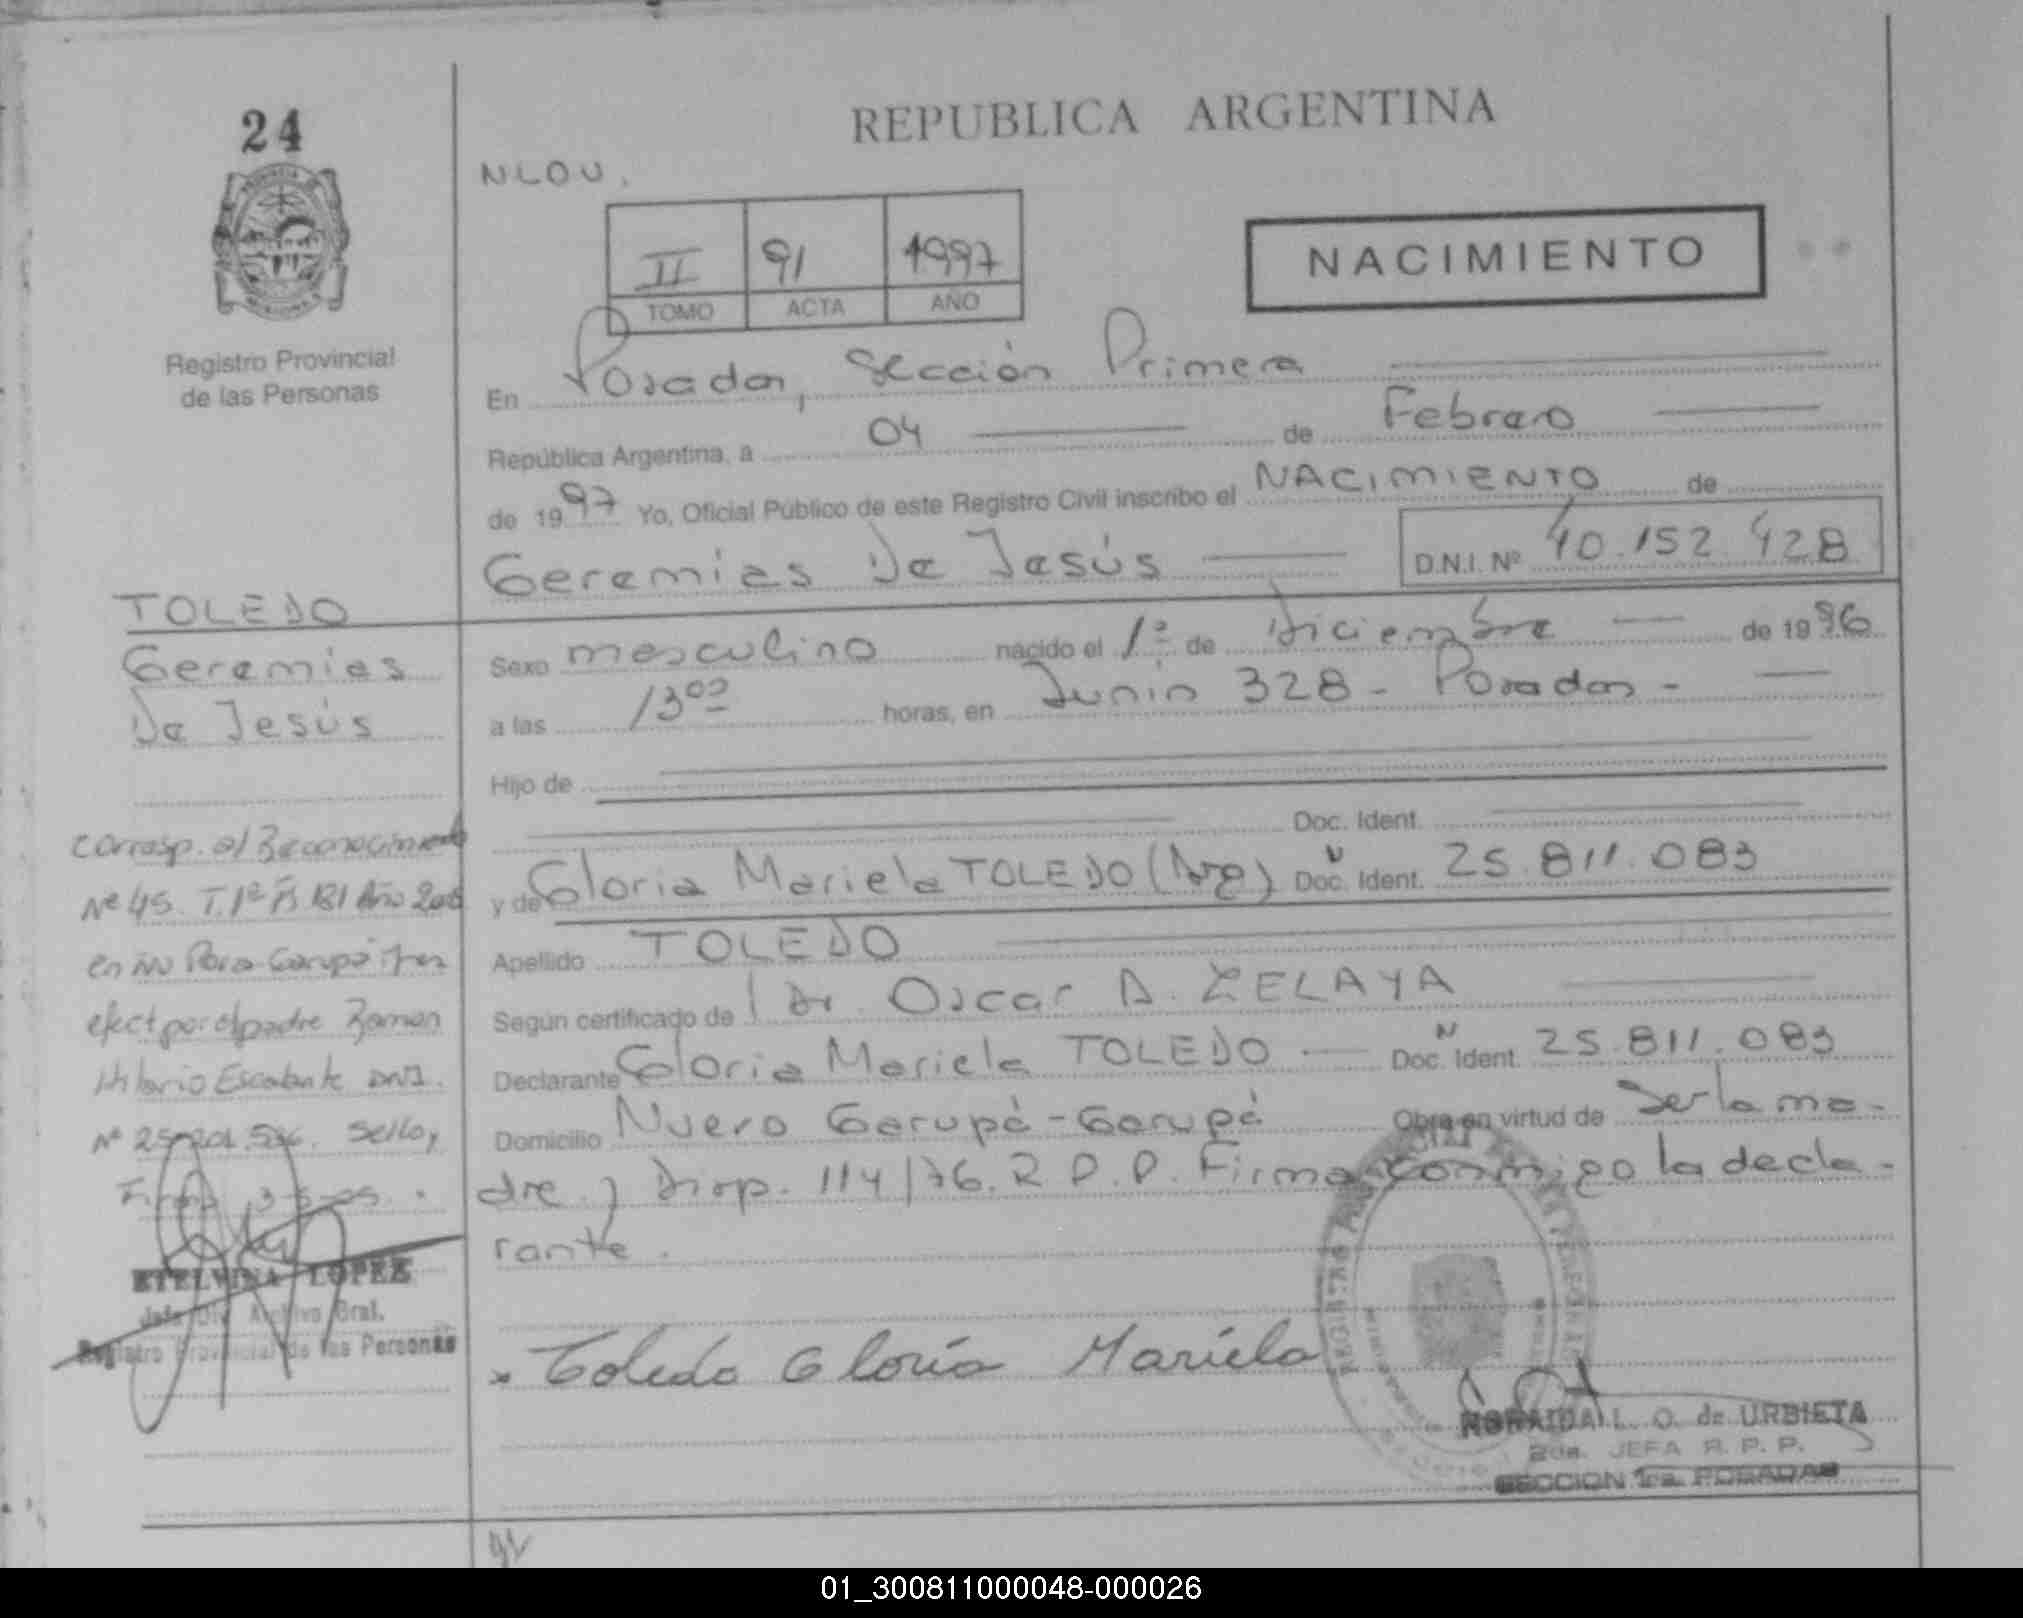 24
REPUBLICA ARGENTINA
NLOU.
II 91 1997
TOMO ACTA AÑO
NACIMIENTO
Registro Provincial
de las Personas
En Posadas, Sección Primera
República Argentina, a 04 de Febrero
de 1997 Yo, Oficial Público de este Registro Civil inscribo el NACIMIENTO de
Geremias De Jesús D.N.I. Nº 40.152.428
Sexo masculino nacido el 1º de Diciembre de 1996
a las 13⁰⁰ horas, en Junin 328 - Posadas -
Hijo de
Doc. Ident.
y de Gloria Mariela TOLEDO (Arg) Doc. Ident. 25.811.083
Apellido TOLEDO
Según certificado de Dr. Oscar A. ZELAYA
Declarante Gloria Mariela TOLEDO Doc. Ident. 25.811.083
Domicilio Nuevo Garupá - Garupá Obra en virtud de Ser la ma-
dre y Disp. 114/76. R.P.P. Firma conmigo la decla-
rante.
Toledo Gloria Mariela
NORAIDA L. O. de URBIETA
2da. JEFA R. P. P.
SECCION 1ra. POSADAS
TOLEDO
Geremias
De Jesús
Corresp. al Reconocimiento
Nº 45. T. 1º Fº 181 Año
en
efect por el padre Ramon
Hilario Escalante DNI.
Nº Sello y
Firma
ETELVINA LOPEZ
Jefe Div. Archivo Gral.
Registro Provincial de las Personas
01_300811000048-000026